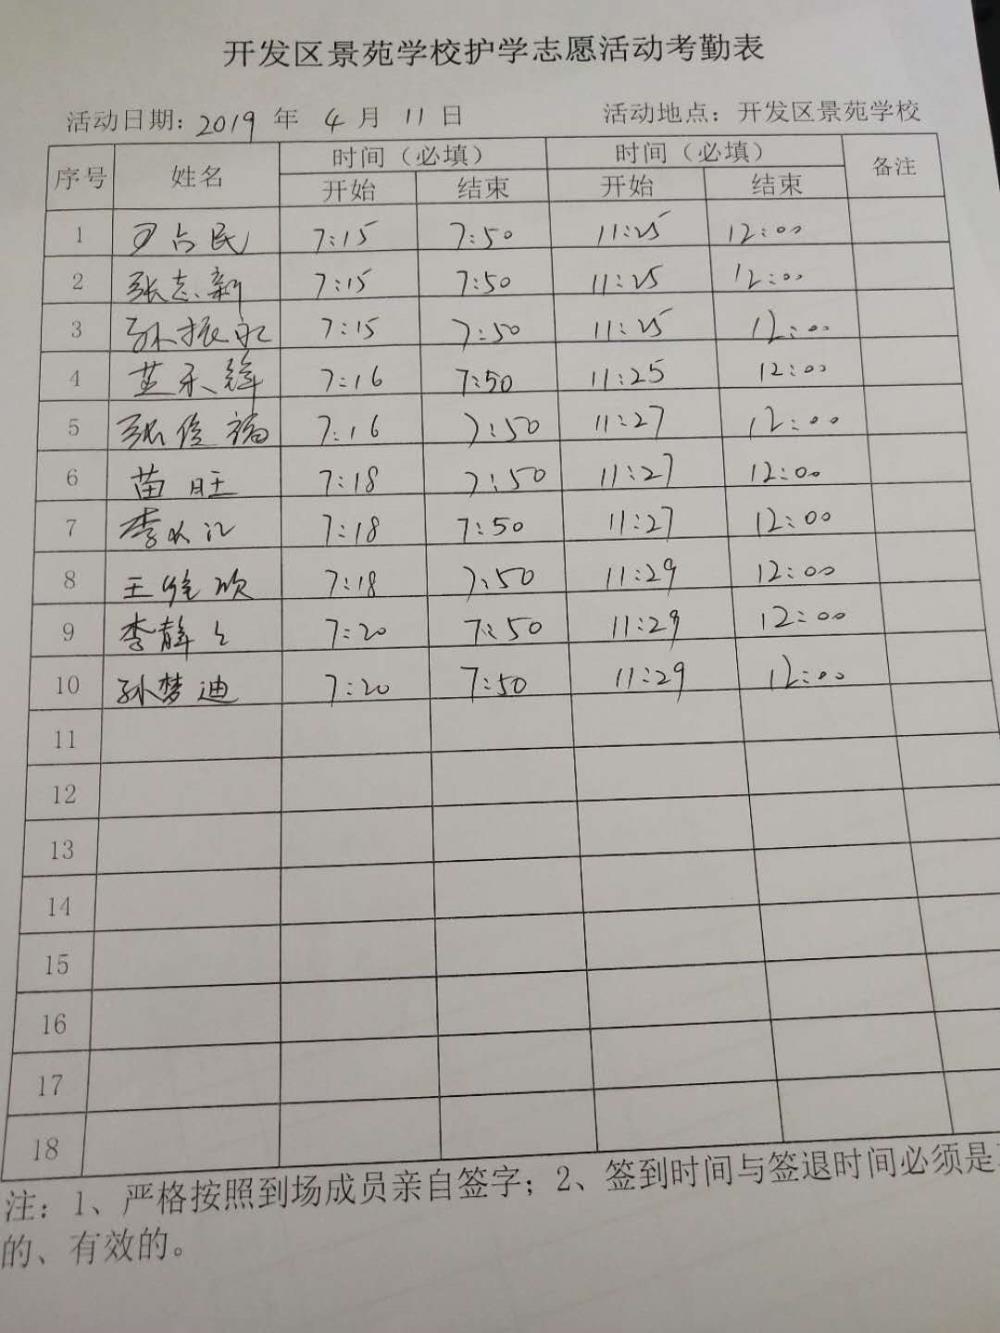 开发区景苑学校护学志愿活动考勤表
活动日期: 2019 年 4 月 11 日 活动地点: 开发区景苑学校
序号 姓名 时间（必填） 时间（必填） 备注
开始 结束 开始 结束
1 尹占民 7:15 7:50 11:25 12:00
2 张志新 7:15 7:50 11:25 12:00
3 孙振 7:15 7:50 11:25 12:00
4 7:16 7:50 11:25 12:00
5 张俊福 7:16 7:50 11:27 12:00
6 苗旺 7:18 7:50 11:27 12:00
7 李 7:18 7:50 11:27 12:00
8 王 欣 7:18 7:50 11:29 12:00
9 李静 7:20 7:50 11:29 12:00
10 孙梦迪 7:20 7:50 11:29 12:00
11
12
13
14
15
16
17
18
注: 1、严格按照到场成员亲自签字; 2、签到时间与签退时间必须是
的、有效的。